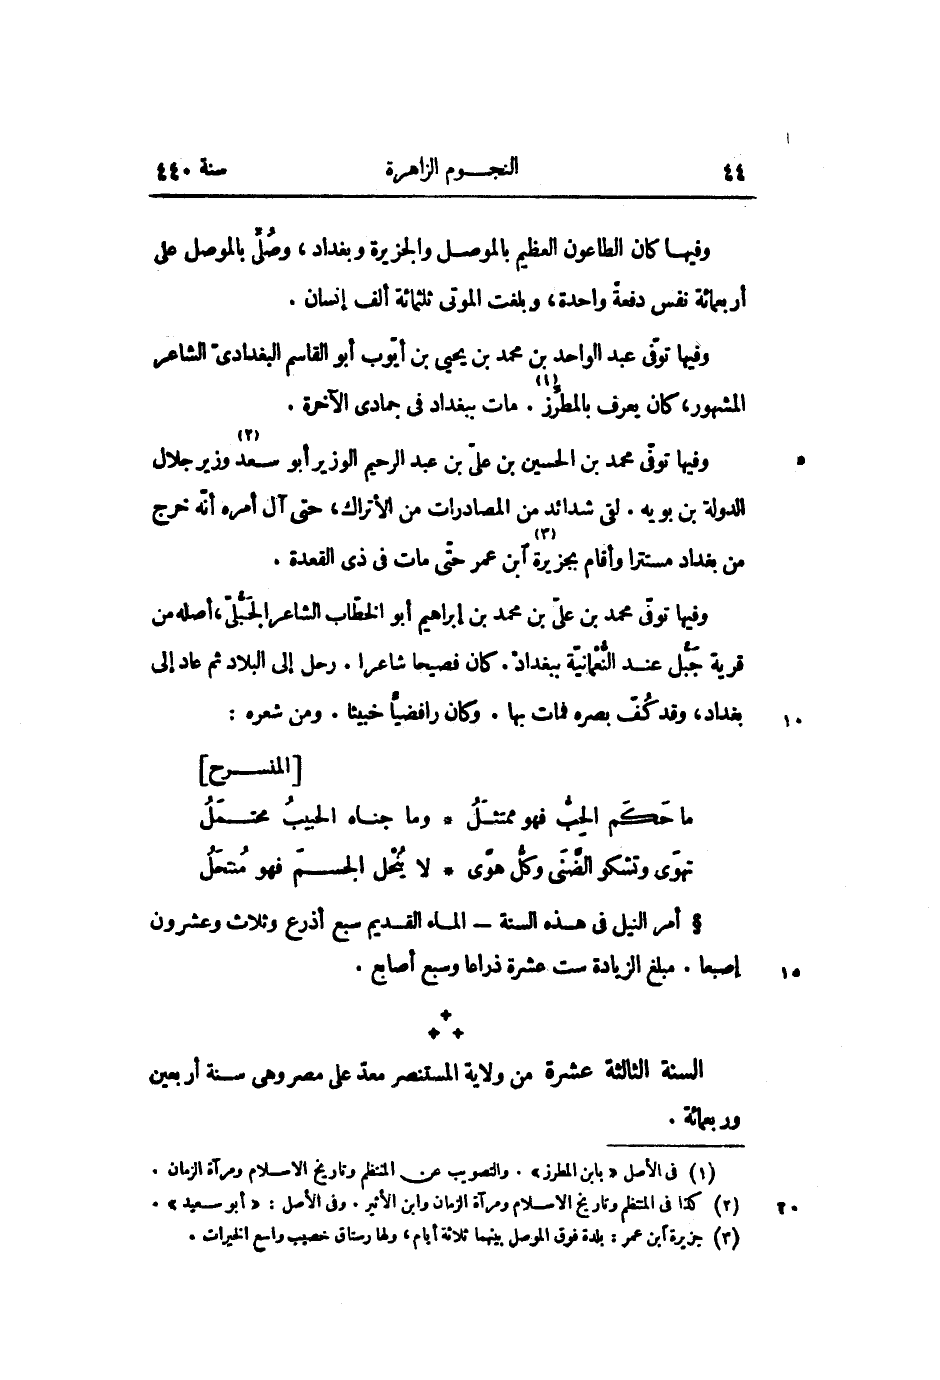 ٤٤ النجـوم الزاهرة سنة ٤٤٠
وفيها كان الطاعون العظيم بالموصل والجزيرة وبغداد، وصُلِّى بالموصل على
أربعمائة نفس دفعةً واحدة، وبلغت الموتى ثلثمائة ألف إنسان .
وفيها توفّى عبد الواحد بن محمد بن يحيى بن أيّوب أبو القاسم البغدادىّ الشاعر
المشهور، كان يعرف بالمطرِّز (١) . مات ببغداد فى جمادى الآخرة .
٥ وفيها توفّى محمد بن الحسين بن علىّ بن عبد الرحيم الوزير أبو سعد (٢) وزير جلال
الدولة بن بويه . لقى شدائد من المصادرات من الأتراك، حتى آل أمره أنّه خرج
من بغداد مستترا وأقام بجزيرة (٣) آبن عمر حتّى مات فى ذى القعدة .
وفيها توفّى محمد بن علىّ بن محمد بن إبراهيم أبو الخطّاب الشاعر الجَبُّلىّ، أصله من
قرية جَبُّل عند النُّعْمانيّة ببغداد . كان فصيحا شاعرا . رحل إلى البلاد ثم عاد إلى
١٠ بغداد، وقد كُفّ بصره فمات بها . وكان رافضيًّا خبيثا . ومن شعره :
[المنسرح]
ما حَكَم الحِبُّ فهو ممتثَلُ * وما جناه الحبيبُ محتمَلُ
تهوَى وتشكو الضَّنَى وكلُّ هوًى * لا يُنْحِل الجسمَ فهو مُنتحَلُ
§ أمر النيل فى هذه السنة — الماء القديم سبع أذرع وثلاث وعشرون
١٥ إصبعا . مبلغ الزيادة ست عشرة ذراعا وسبع أصابع .
+
+ +
السنة الثالثة عشرة من ولاية المستنصر معدّ على مصر وهى سنة أربعين
وربعمائة .
(١) فى الأصل «بابن المطرز» . والتصويب عن المنتظم وتاريخ الاسلام ومرآة الزمان .
٢٠ (٢) كذا فى المنتظم وتاريخ الاسلام ومرآة الزمان وابن الأثير . وفى الأصل : «أبو سعيد» .
(٣) جزيرة آبن عمر : بلدة فوق الموصل بينهما ثلاثة أيام، ولها رستاق خصيب واسع الخيرات .